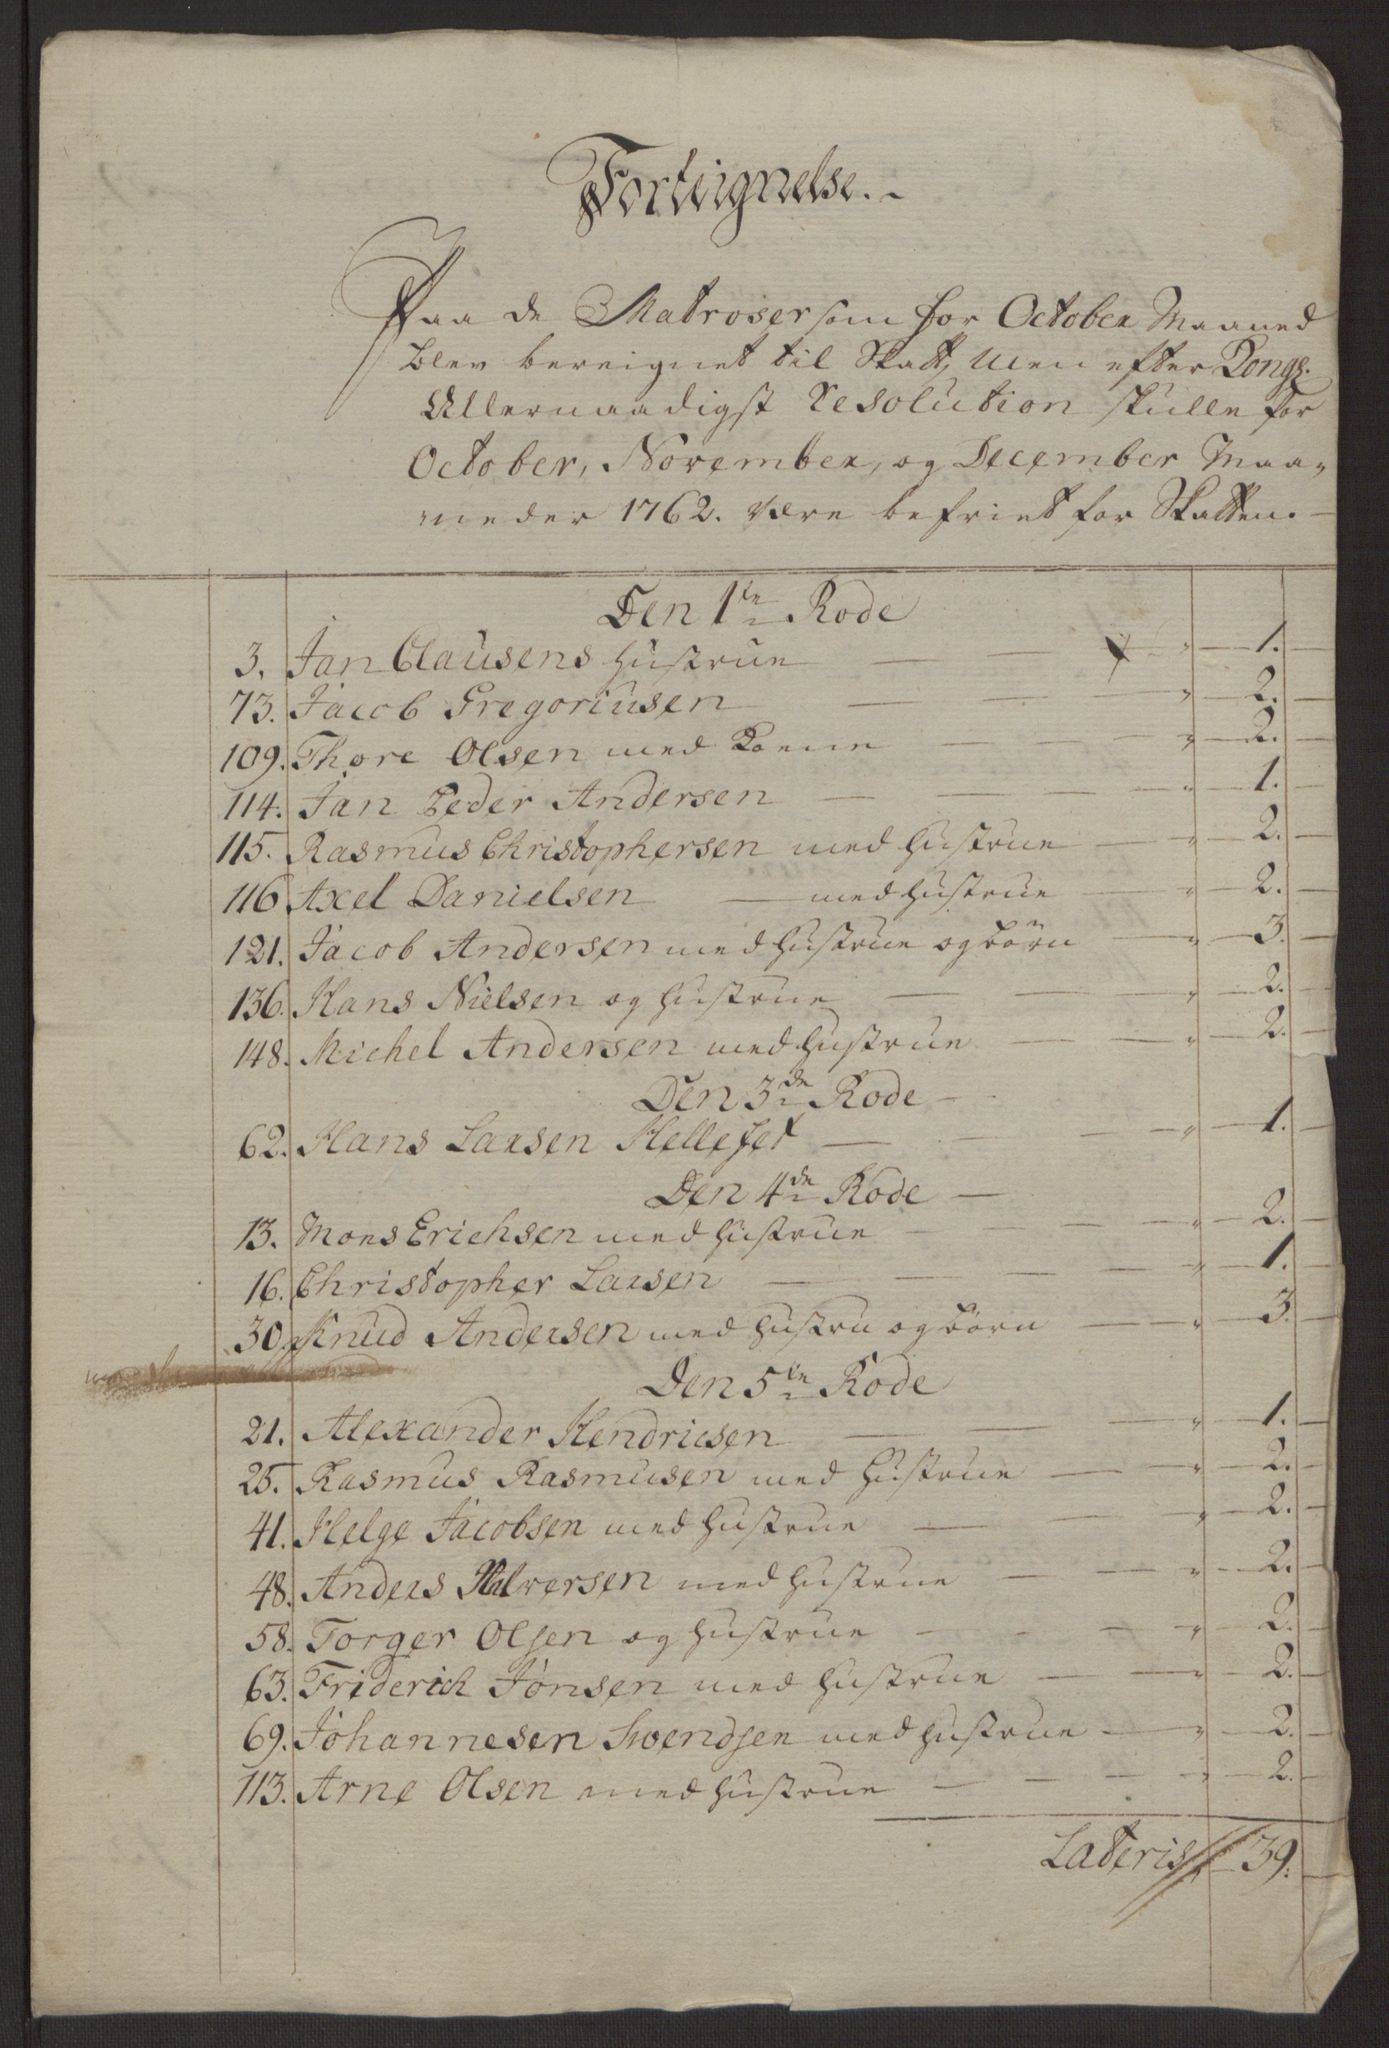 Forteignelse.
Paa de Matroser som for October Maaned
blev bereignet til Skatt, Men efter Kongs:
Allernaadigst Resolution skulle for
October, November, og December Maa-
neder 1762. være befriet for Skatten.
Den 1te Rode
3. Jan Clausens hustrue " 1.
73. Jacob Gregoriusen " 2.
109. Thore Olsen med Konne " 2.
114. Jan Peder Andersen " 1.
115. Rasmus Christophersen med hustrue " 2.
116 Axel Danielsen med hustrue " 2.
121. Jacob Andersen med hustrue og børn " 3.
136. Hans Nielsen og hustrue " 2.
148. Michel Andersen med hustrue " 2.
Den 3de Rode
62. Hans Larsen Helleset " 1.
Den 4de Rode
13. Mons Erichsen med hustrue " 2.
16. Christopher Larsen " 1.
30. Knud Andersen med hustru og børn " 3.
Den 5te Rode
21. Alexander Hendricsen " 1.
25. Rasmus Rasmusen med hustrue " 2.
41. Helge Jacobsen med hustrue " 2.
48. Anders Halversen med hustrue " 2.
58. Torger Olsen og hustrue " 2.
63. Friderich Jonsen med hustrue " 2.
69. Johannesen Svendsen med hustrue " 2.
113. Arne Olsen med hustrue " 2.
Lateris 39.